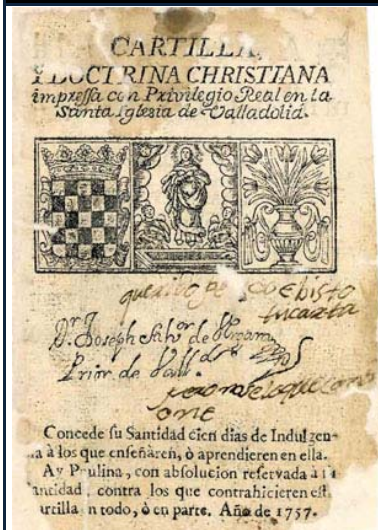 CARTILLA,
Y DOCTRINA CHRISTIANA
impressa con Privilegio Real en la
Santa Iglesia de Valladolid.
querido
visto
tucarta
Dr. Joseph de
Prior de Vall.
Concede su Santidad cien dias de Indulgen-
a à los que enseñaren, ò aprendieren en ella.
Ay Paulina, con absolucion reservada à
antidad, contra los que contrahicieren est
artilla n todo, ò en parte. Año de 1757.